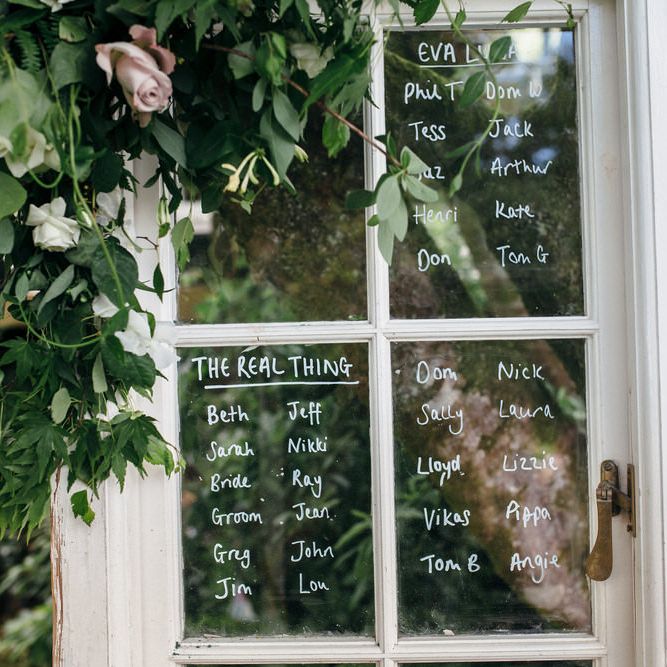 EVA
Phil T Dom W
Tess Jack
Arthur
Henri Kate
Don Tom G
THE REAL THING
Beth Jeff
Sarah Nikki
Bride Ray
Groom Jean
Greg John
Jim Lou
Dom Nick
Sally Laura
Lloyd Lizzie
Vikas Pippa
Tom B Angie